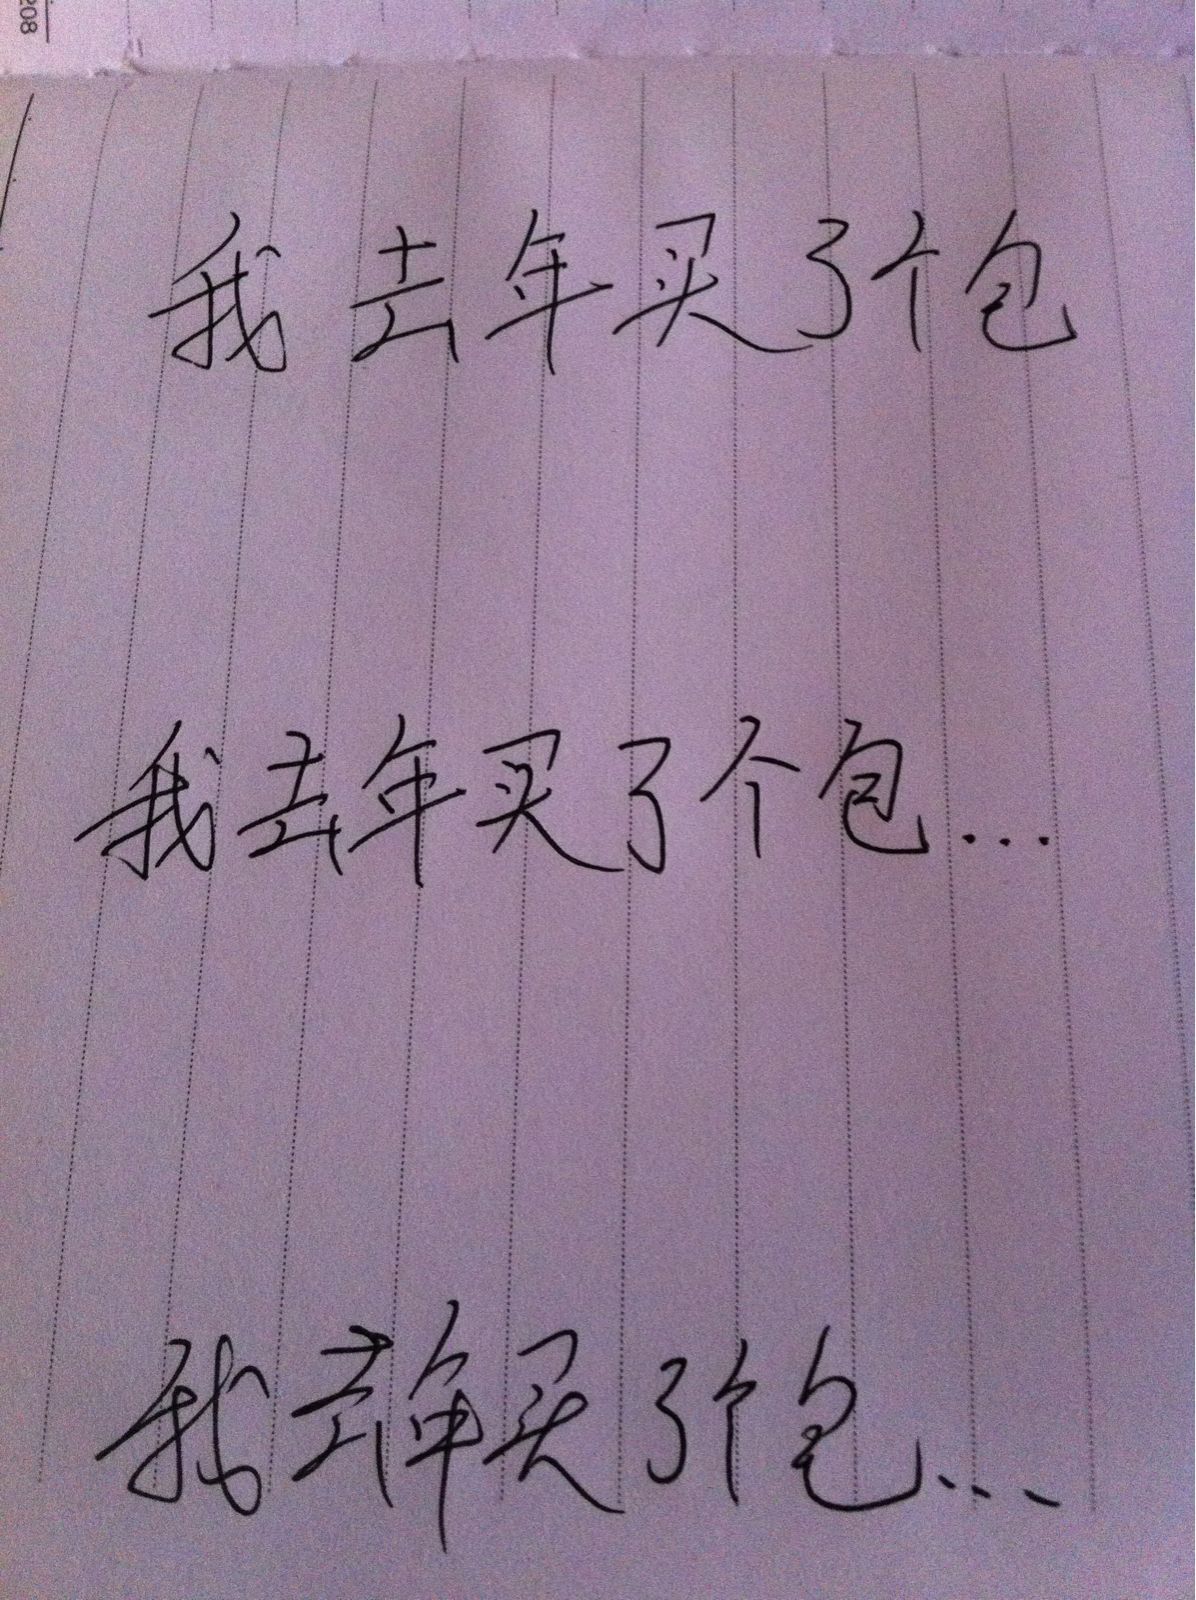 208
我去年买了个包
我去年买了个包...
我去年买了个包...